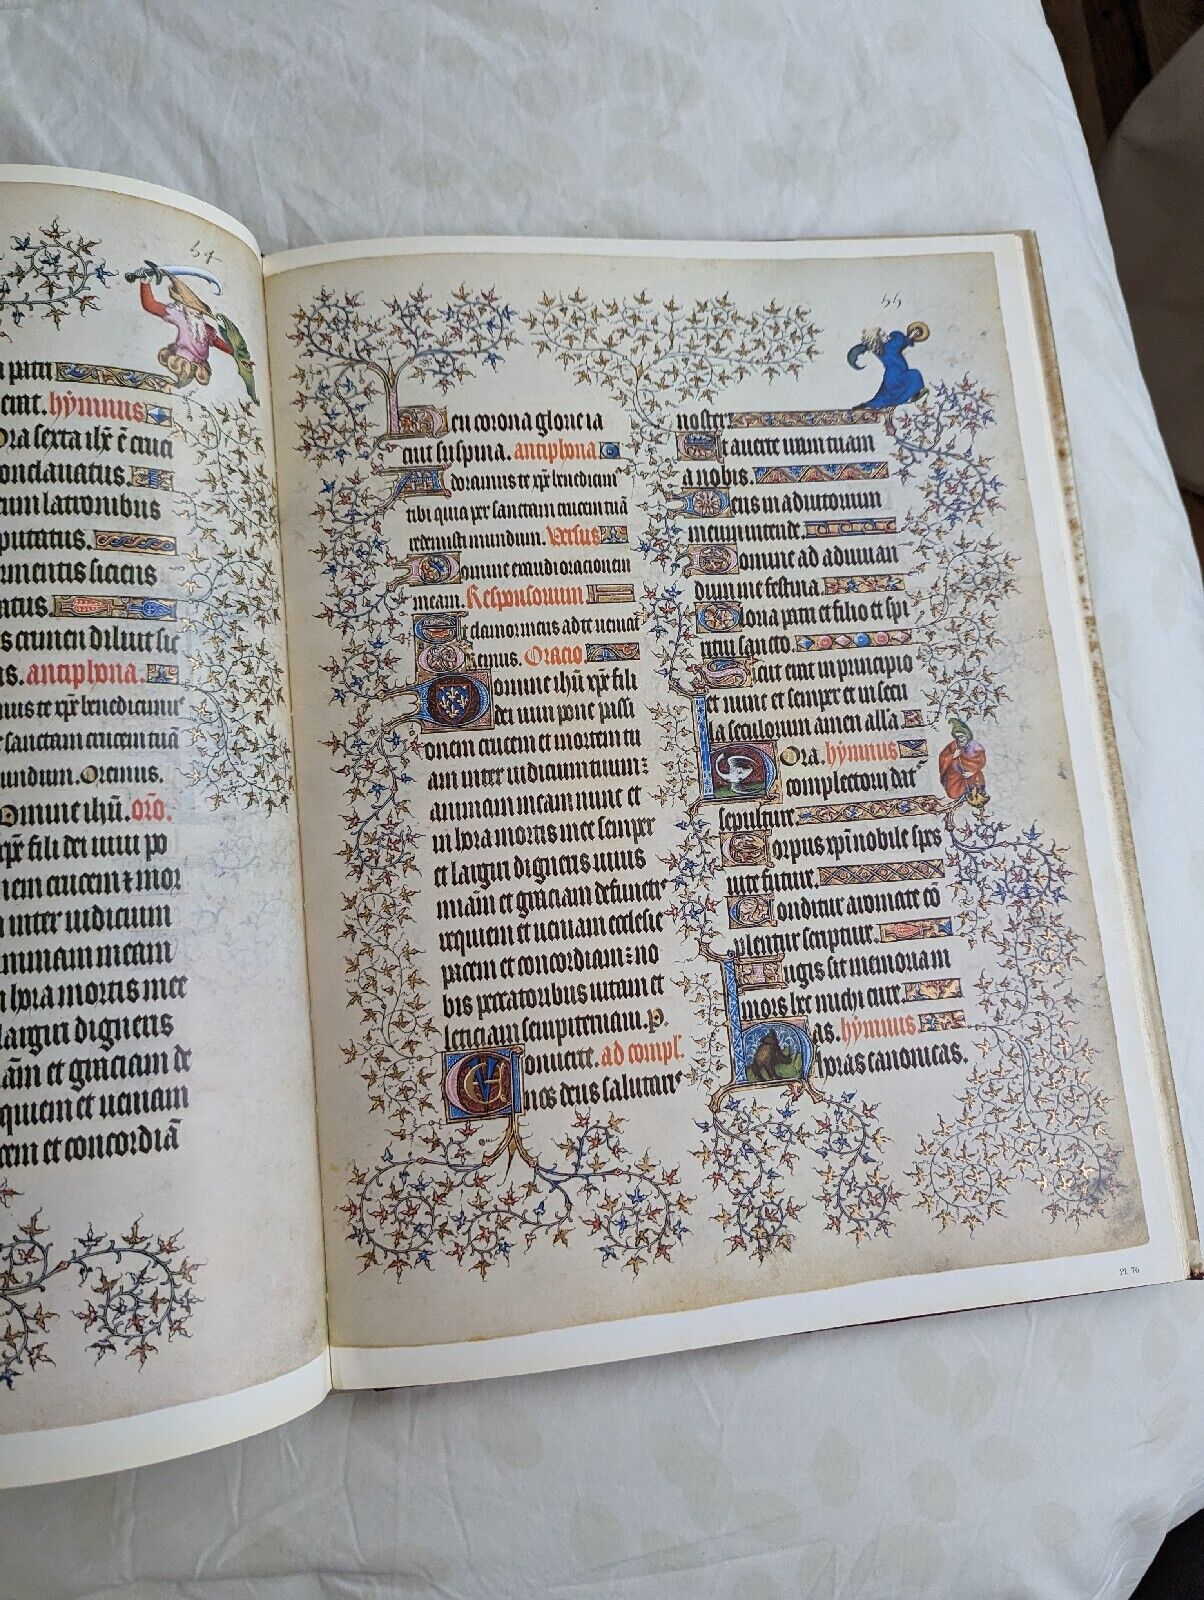 54
patri
erat. hymnus
Ora sexta ihc e cruci
conclavatus.
cum latronibus
putatus.
tormentis siciens
crimen diluit sic
antiphona.
mus te xpe benedicimus
sanctam crucem tuā
mundum. Oremus.
Domine ihū. orō.
xpe fili dei uiui po
crucem ⁊ mor
inter iudicium
animam meam
hora mortis mee
largiri digneris
et graciam de
requiem et ueniam
pacem et concordiā
55
en corona glorie ia
cuit supina. antiphona
Adoramus te xpe benedicim
tibi quia per sanctam crucem tuā
redemisti mundum. Versus
Domine exaudi oracionem
meam. Responsorium
Et clamor meus ad te ueniat
Oremus. Oracio.
Domine ihū xpe fili
dei uiui pone passi
onem crucem et mortem tu
am inter iudicium tuum:
animam meam nunc et
in hora mortis mee semper
et largiri digneris uiuis
miām et graciam defunctis
requiem et ueniam ecclesie
pacem et concordiam: no
bis peccatoribus uitam et
leticiam sempiternam. P.
Conuerte. ad compl.
nos deus salutaris
noster:
Et auerte iram tuam
a nobis.
Deus in adiutorium
meum intende.
Domine ad adiuuan
dum me festina.
Gloria patri et filio et spi
ritui sancto.
Sicut erat in principio
et nunc et semper et in secu
la seculorum amen all'a
Hora. hymnus
completorii dat
sepulture.
Corpus xpi nobile spes
uite future.
Conditur aromate cō
plentur scripture.
Iugis sit memoriam
mors hec michi cure.
Has. hymnus
horas canonicas.
Pl. 76